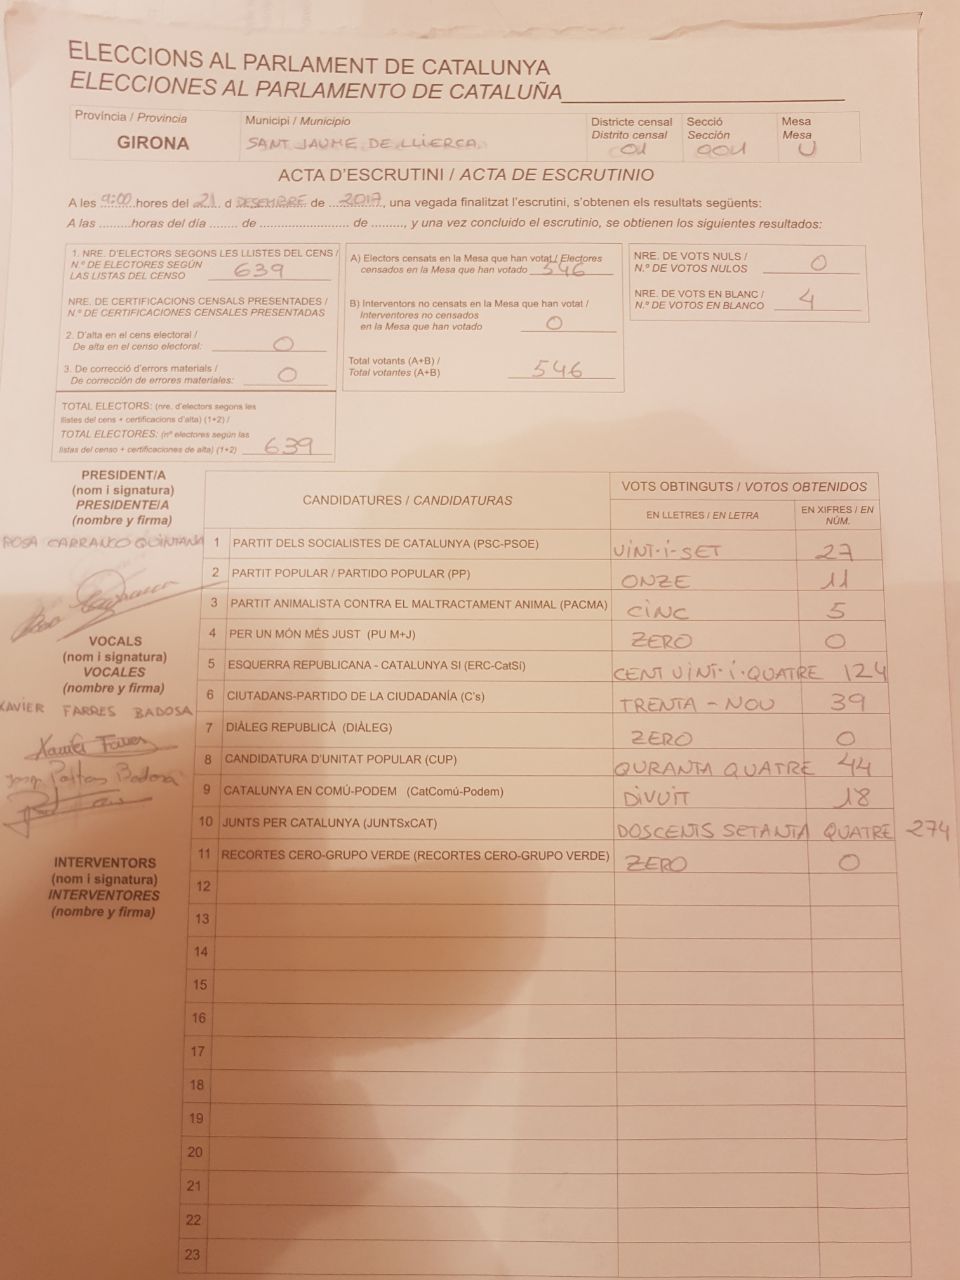 ELECCIONS AL PARLAMENT DE CATALUNYA
ELECCIONES AL PARLAMENTO DE CATALUÑA
Província / Provincia
GIRONA
Municipi / Municipio
SANT JAUME DE LLIERCA
Districte censal
Distrito censal
01
Secció
Sección
001
Mesa
Mesa
U
ACTA D'ESCRUTINI / ACTA DE ESCRUTINIO
A les 9:00 hores del 21 d DESEMBRE de 2017, una vegada finalitzat l'escrutini, s'obtenen els resultats següents:
A las .........horas del día ........ de ......................... de ........., y una vez concluido el escrutinio, se obtienen los siguientes resultados:
1. NRE. D'ELECTORS SEGONS LES LLISTES DEL CENS /
N.º DE ELECTORES SEGÚN
LAS LISTAS DEL CENSO 639
NRE. DE CERTIFICACIONS CENSALS PRESENTADES /
N.º DE CERTIFICACIONES CENSALES PRESENTADAS
2. D'alta en el cens electoral /
De alta en el censo electoral: 0
3. De correcció d'errors materials /
De corrección de errores materiales: 0
TOTAL ELECTORS: (nre. d'electors segons les
llistes del cens + certificacions d'alta) (1+2) /
TOTAL ELECTORES: (nº electores según las
listas del censo + certificaciones de alta) (1+2) 639
A) Electors censats en la Mesa que han votat / Electores
censados en la Mesa que han votado 546
B) Interventors no censats en la Mesa que han votat /
Interventores no censados
en la Mesa que han votado 0
Total votants (A+B) /
Total votantes (A+B) 546
NRE. DE VOTS NULS /
N.º DE VOTOS NULOS 0
NRE. DE VOTS EN BLANC /
N.º DE VOTOS EN BLANCO 4
PRESIDENT/A
(nom i signatura)
PRESIDENTE/A
(nombre y firma)
ROSA CARRANCO QUINTANA
VOCALS
(nom i signatura)
VOCALES
(nombre y firma)
XAVIER FARRES BADOSA
Xavier Farres
INTERVENTORS
(nom i signatura)
INTERVENTORES
(nombre y firma)
CANDIDATURES / CANDIDATURAS
VOTS OBTINGUTS / VOTOS OBTENIDOS
EN LLETRES / EN LETRA
EN XIFRES / EN
NÚM.
1 PARTIT DELS SOCIALISTES DE CATALUNYA (PSC-PSOE) VINT-I-SET 27
2 PARTIT POPULAR / PARTIDO POPULAR (PP) ONZE 11
3 PARTIT ANIMALISTA CONTRA EL MALTRACTAMENT ANIMAL (PACMA) CINC 5
4 PER UN MÓN MÉS JUST (PU M+J) ZERO 0
5 ESQUERRA REPUBLICANA - CATALUNYA SI (ERC-CatSí) CENT VINT-I-QUATRE 124
6 CIUTADANS-PARTIDO DE LA CIUDADANÍA (C's) TRENTA - NOU 39
7 DIÀLEG REPUBLICÀ (DIÀLEG) ZERO 0
8 CANDIDATURA D'UNITAT POPULAR (CUP) QURANTA QUATRE 44
9 CATALUNYA EN COMÚ-PODEM (CatComú-Podem) DIVUIT 18
10 JUNTS PER CATALUNYA (JUNTSxCAT) DOSCENTS SETANTA QUATRE 274
11 RECORTES CERO-GRUPO VERDE (RECORTES CERO-GRUPO VERDE) ZERO 0
12
13
14
15
16
17
18
19
20
21
22
23